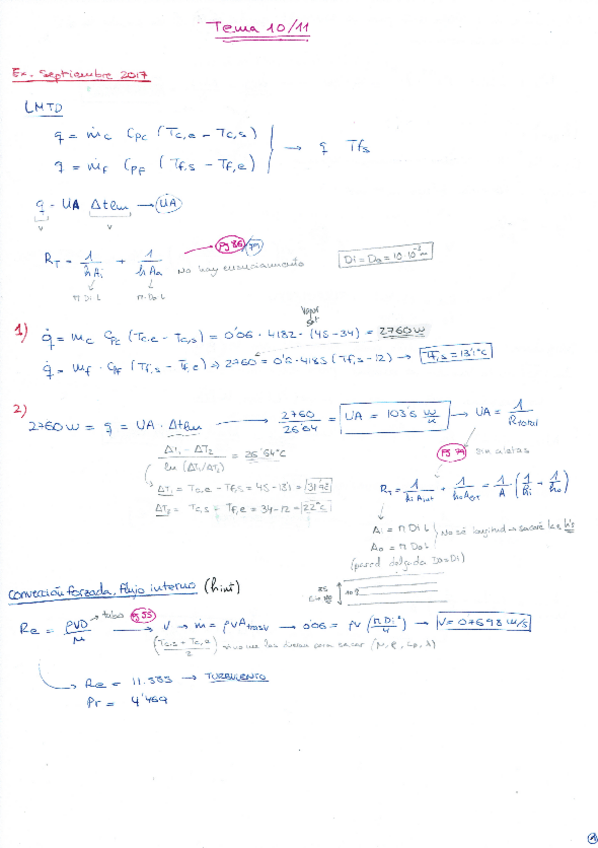 Tema 10/11
Ex. Septiembre 2017
LMTD
q = ṁc Cpc (Tc,e - Tc,s)
q = ṁf Cpf (Tf,s - Tf,e) → q Tfs
q = UA Δtlm → UA
RT = 1/hAi + 1/hAo → Pg 86 No hay ensuciamiento Di = Do = 10 10⁻³ m
π Di L π Do L
1) q̇ = mc Cpc (Tc,e - Tc,s) = 0'06 · 4182 · (45-34) = 2760W
q̇ = mf · Cpf (Tf,s - Tf,e) → 2760 = 0'6 · 4185 (Tf,s - 12) → Tf,s = 13'1°C
2) 2760W = q = UA · Δtlm → 2760/26'64 = UA = 103'6 W/K → UA = 1/Rtotal
ΔT1 - ΔT2 / ln (ΔT1/ΔT2) = 26'64°C
Pg 79 sin aletas
ΔT1 = Tc,e - Tf,s = 45 - 13'1 = 31'9°C
ΔT2 = Tc,s - Tf,e = 34-12 = 22°C
RT = 1/hi Ai,int + 1/ho Aext = 1/A (1/hi + 1/ho)
Ai = π Di L
Ao = π Do L
No sé longitud → sacaré la
(pared delgada Do=Di)
Convección forzada, flujo interno (h int)
Re = ρVD/μ → tubo Pg 55 → V → ṁ = ρVAtrasv → 0'06 = ρV (π Di²/4) → V = 0'7698 m/s
(Tc,s + Tc,e)/2
Re = 11.555 → TURBULENTO
Pr = 4'469